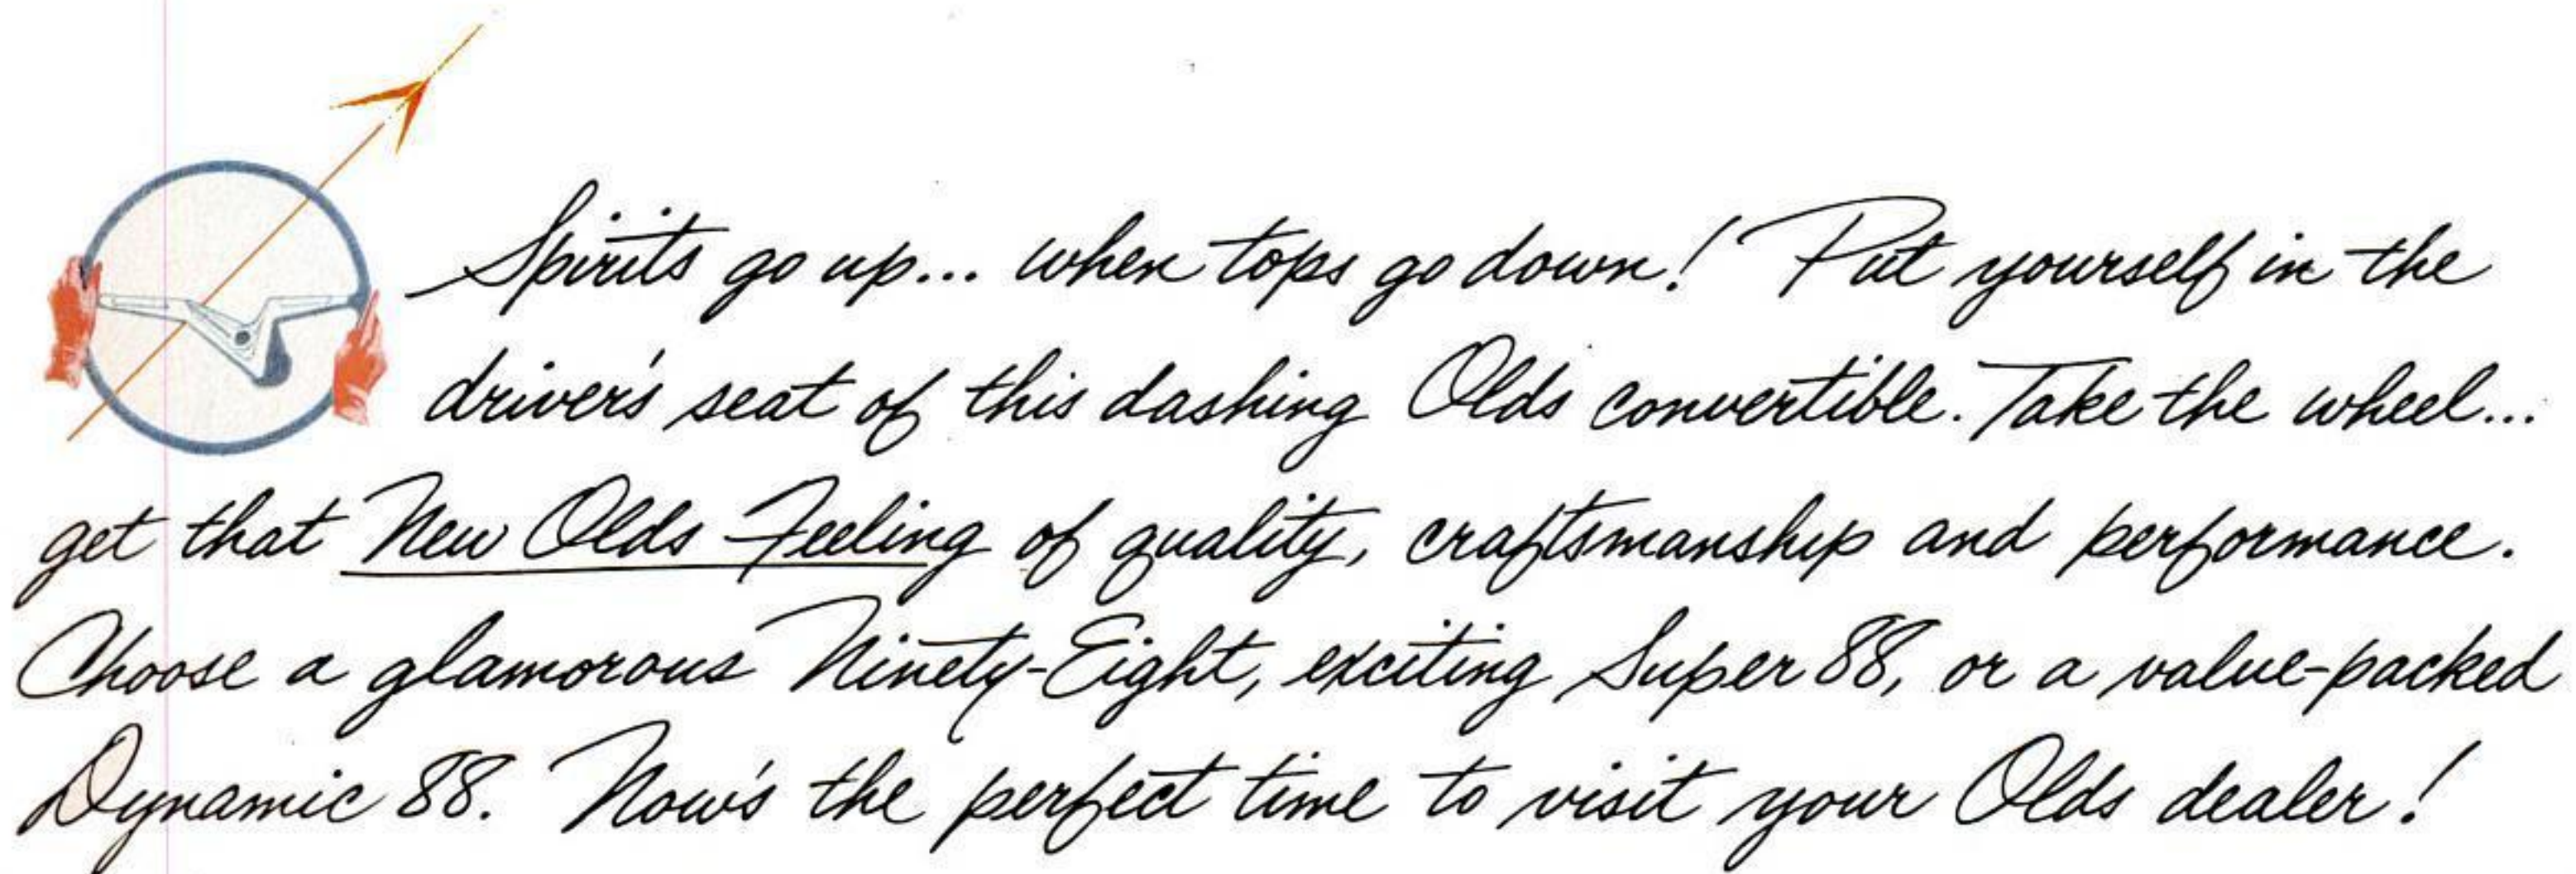 Spirits go up... when tops go down! Put yourself in the
driver's seat of this dashing Olds convertible. Take the wheel...
get that New Olds Feeling of quality, craftsmanship and performance.
Choose a glamorous Ninety-Eight, exciting Super 88, or a value-packed
Dynamic 88. Now's the perfect time to visit your Olds dealer!